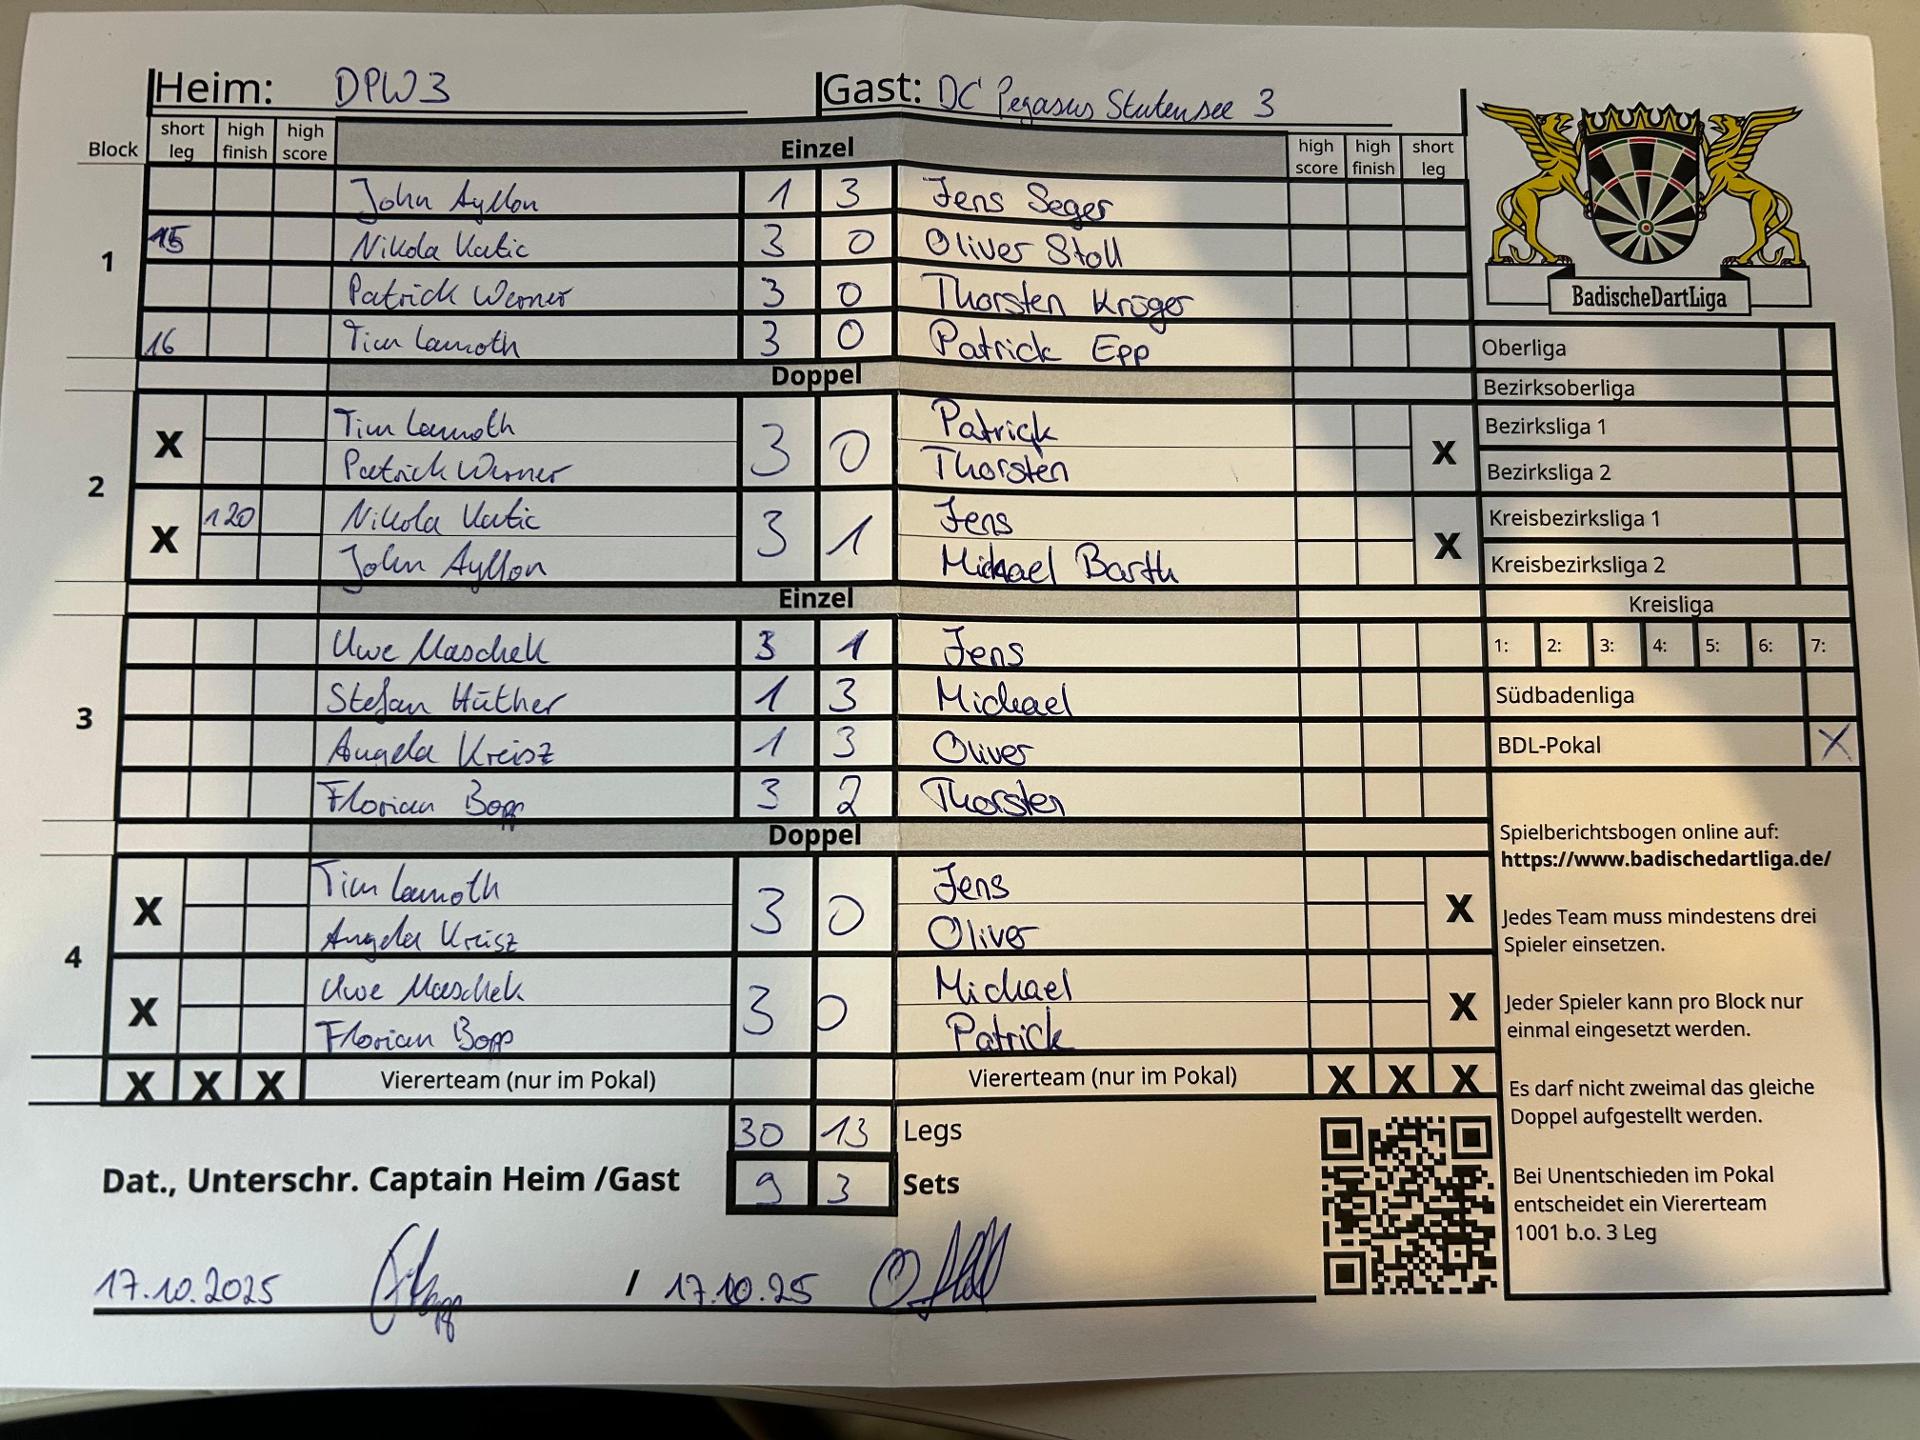 Heim: DPW3 Gast: DC Pegasus Stutensee 3
Block short leg high finish high score Einzel high score high finish short leg
1
John Ayllon 1 3 Jens Seger
15 Nikola Katic 3 0 Oliver Stoll
Patrick Werner 3 0 Thorsten Kröger
16 Tim Lamoth 3 0 Patrick Epp
Doppel
2
X Tim Lamoth 3 0 Patrick X
Patrick Werner Thorsten
X 120 Nikola Katic 3 1 Jens X
John Ayllon Michael Barth
Einzel
3
Uwe Maschek 3 1 Jens
Stefan Hüther 1 3 Michael
Angela Kreisz 1 3 Oliver
Florian Bopp 3 2 Thorsten
Doppel
4
X Tim Lamoth 3 0 Jens X
Angela Kreisz Oliver
X Uwe Maschek 3 0 Michael X
Florian Bopp Patrick
X X X Viererteam (nur im Pokal) Viererteam (nur im Pokal) X X X
30 13 Legs
Dat., Unterschr. Captain Heim /Gast 9 3 Sets
17.10.2025 / 17.10.25
BadischeDartLiga
Oberliga
Bezirksoberliga
Bezirksliga 1
Bezirksliga 2
Kreisbezirksliga 1
Kreisbezirksliga 2
Kreisliga
1: 2: 3: 4: 5: 6: 7:
Südbadenliga
BDL-Pokal X
Spielberichtsbogen online auf:
https://www.badischedartliga.de/
Jedes Team muss mindestens drei
Spieler einsetzen.
Jeder Spieler kann pro Block nur
einmal eingesetzt werden.
Es darf nicht zweimal das gleiche
Doppel aufgestellt werden.
Bei Unentschieden im Pokal
entscheidet ein Viererteam
1001 b.o. 3 Leg